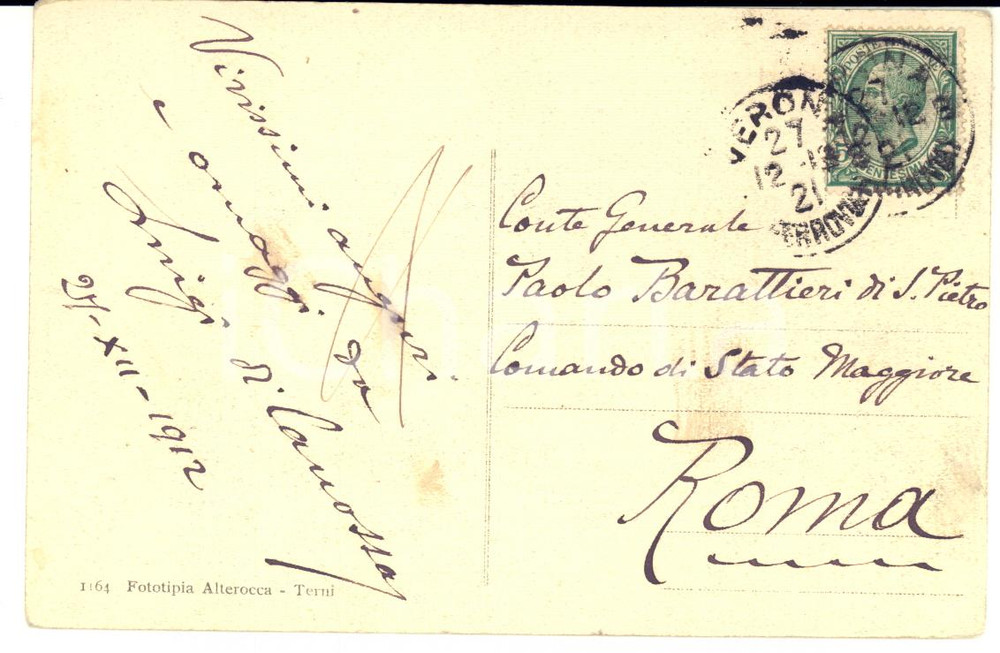 Vivissimi auguri
e omaggi da
Luigi di Canossa
25-XII-1912
1164 Fototipia Alterocca - Terni
POSTE ITALIANE
5 CENTESIMI
VERONA
27
12 12
21
FERROVIA
Conte Generale
Paolo Barattieri di S. Pietro
Comando di Stato Maggiore
Roma